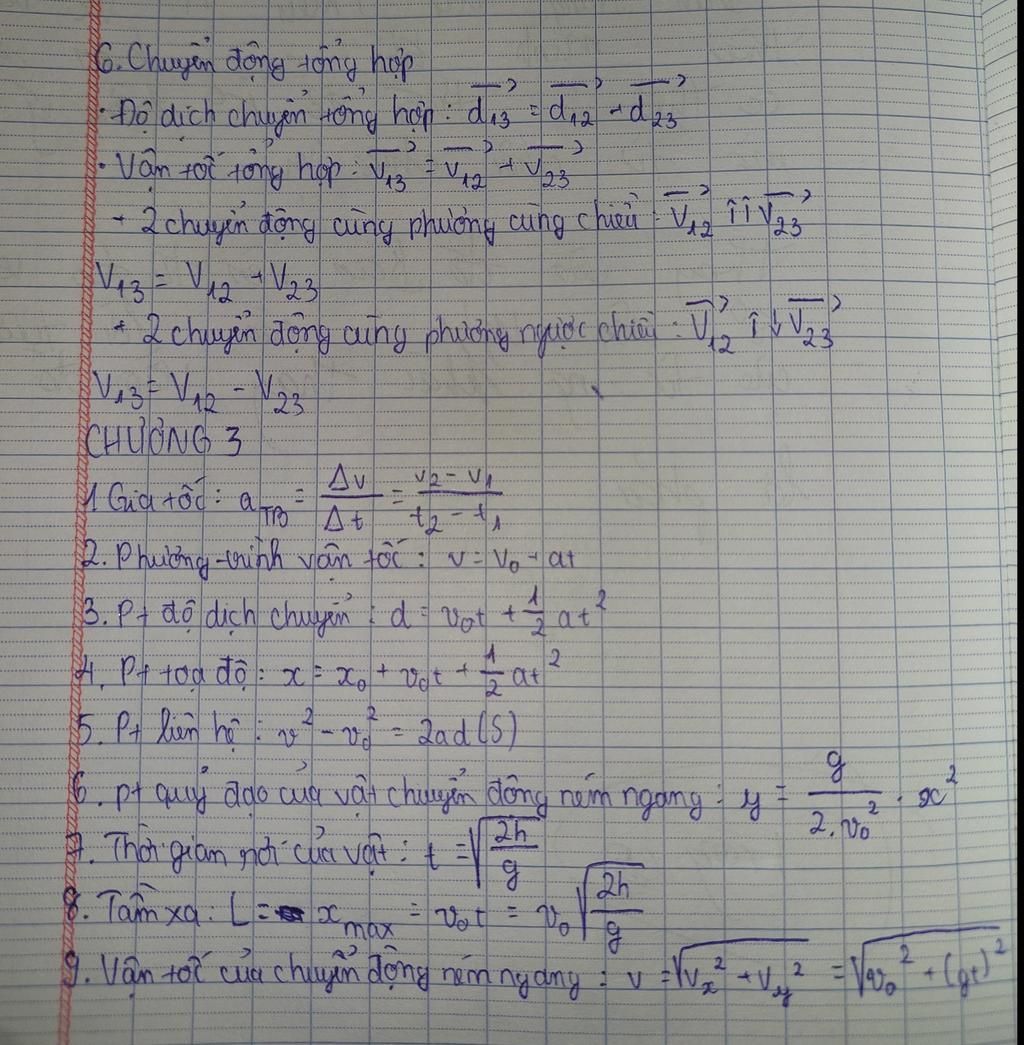 6. Chuyển động tổng hợp
· Độ dịch chuyển tổng hợp: d₁₃⃗ = d₁₂⃗ + d₂₃⃗
· Vận tốc tổng hợp: v₁₃⃗ = v₁₂⃗ + v₂₃⃗
+ 2 chuyển động cùng phương cùng chiều: v₁₂⃗ ↑↑ v₂₃⃗
V₁₃ = V₁₂ + V₂₃
+ 2 chuyển động cùng phương ngược chiều: v₁₂⃗ ↑↓ v₂₃⃗
V₁₃ = V₁₂ - V₂₃
CHƯƠNG 3
1 Gia tốc: a_TB = Δv/Δt = (v₂ - v₁)/(t₂ - t₁)
2. Phương trình vận tốc: v = v₀ + at
3. Pt độ dịch chuyển: d = v₀t + 1/2 at²
4. Pt toạ độ: x = x₀ + v₀t + 1/2 at²
5. Pt liên hệ: v² - v₀² = 2ad (S)
6. pt quỹ đạo của vật chuyển động ném ngang: y = g/(2.v₀²) . x²
7. Thời gian rơi của vật: t = √(2h/g)
8. Tầm xa: L = x_max = v₀t = v₀√(2h/g)
9. Vận tốc của chuyển động ném ngang: v = √(v_x² + v_y²) = √(v₀² + (gt)²)